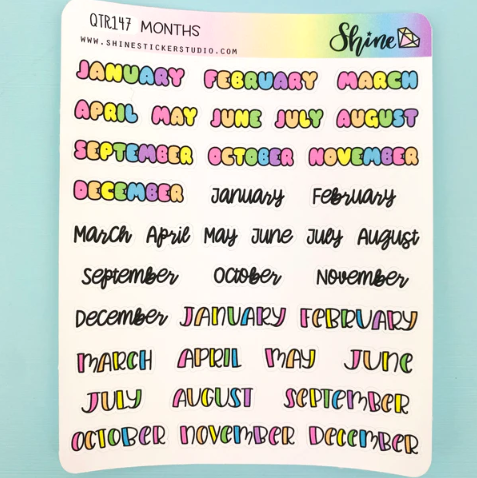 QTR147 MONTHS
WWW.SHINESTICKERSTUDIO.COM
Shine
JANUARY FEBRUARY MARCH
APRIL MAY JUNE JULY AUGUST
SEPTEMBER OCTOBER NOVEMBER
DECEMBER January February
March April May June July August
September October November
December JANUARY FEBRUARY
MARCH APRIL MAY JUNE
JULY AUGUST SEPTEMBER
OCTOBER NOVEMBER DECEMBER